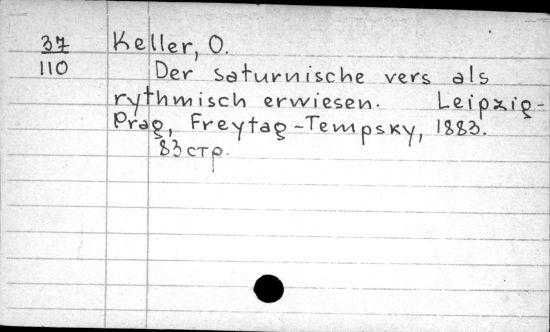 37
110
Keller, O.
Der saturnische vers als
rythmisch erwiesen. Leipzig-
Prag, Freytag-Tempsky, 1883.
83 стр.